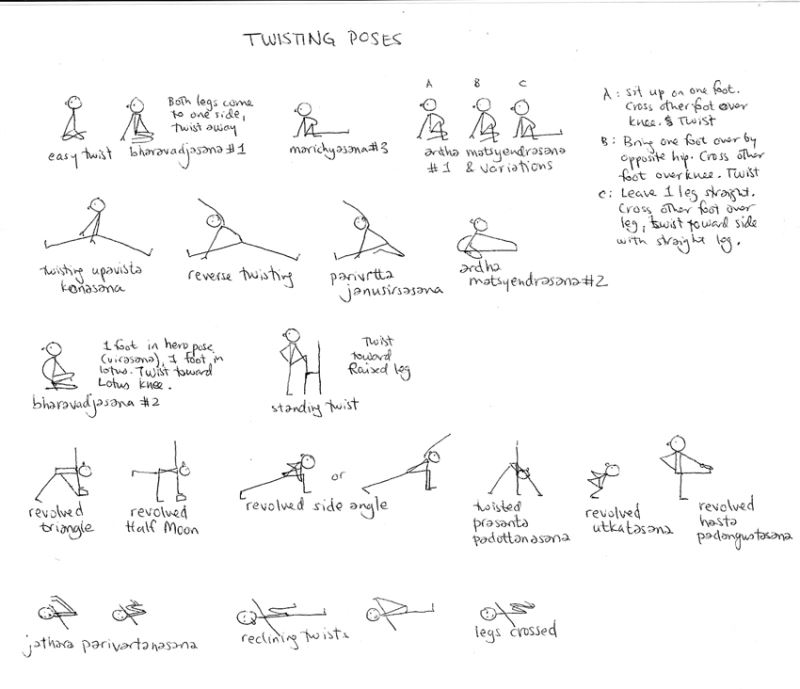 TWISTING POSES
Both legs come
to one side,
twist away
easy twist
bharavadjasana #1
marichyasana #3
A B C
ardha matsyendrasana
#1 & variations
A: Sit up on one foot.
Cross other foot over
knee. & Twist
B: Bring one foot over by
opposite hip. Cross other
foot over knee. Twist
C: Leave 1 leg straight.
Cross other foot over
leg, twist toward side
with straight leg.
twisting upavista
konasana
reverse twisting
parivrtta
janusirsasana
ardha
matsyendrasana #2
1 foot in hero pose
(virasana), 1 foot in
lotus. Twist toward
Lotus knee.
bharavadjasana #2
Twist
toward
Raised leg
standing twist
revolved
triangle
revolved
Half Moon
or
revolved side angle
twisted
prasanta
padottanasana
revolved
utkatasana
revolved
hasta
padangustasana
jathara parivartanasana
reclining twists
legs crossed